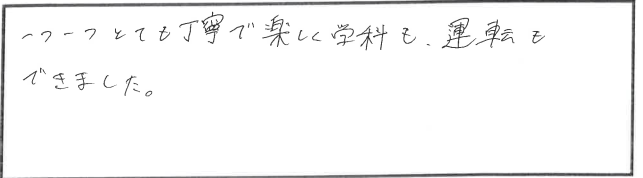 一つ一つとても丁寧で楽しく学科も、運転も
できました。